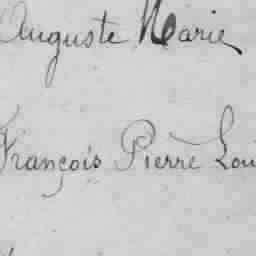 Auguste Marie
François Pierre Lou